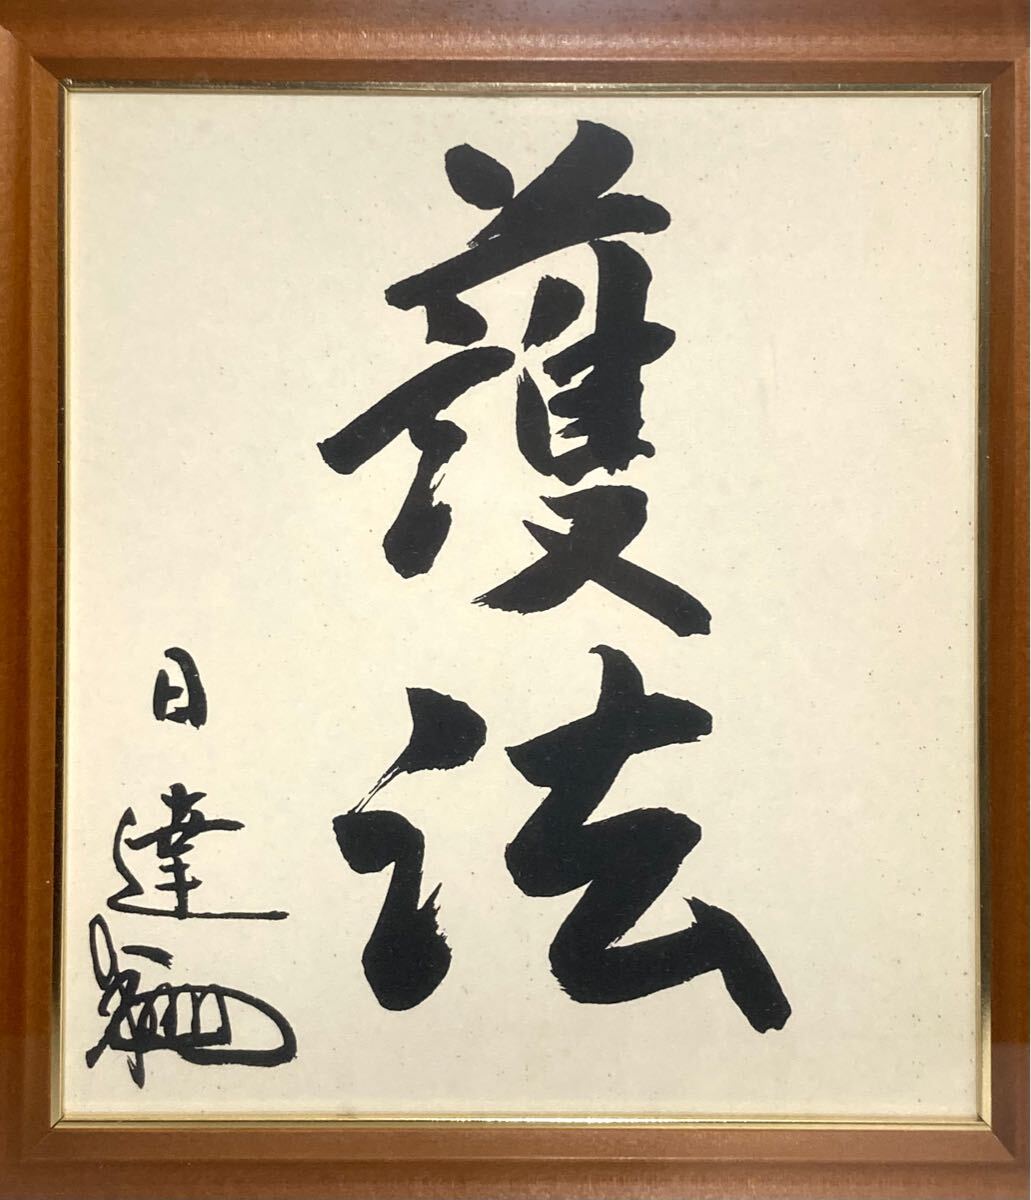 護法
日達